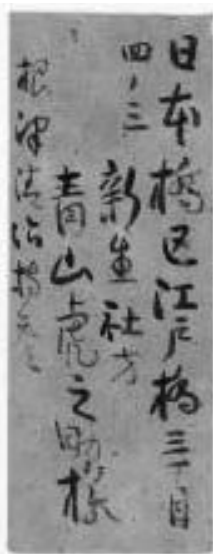 日本橋区江戸橋三丁目
四ノ三
新生社方
青山虎之助様
根津清治